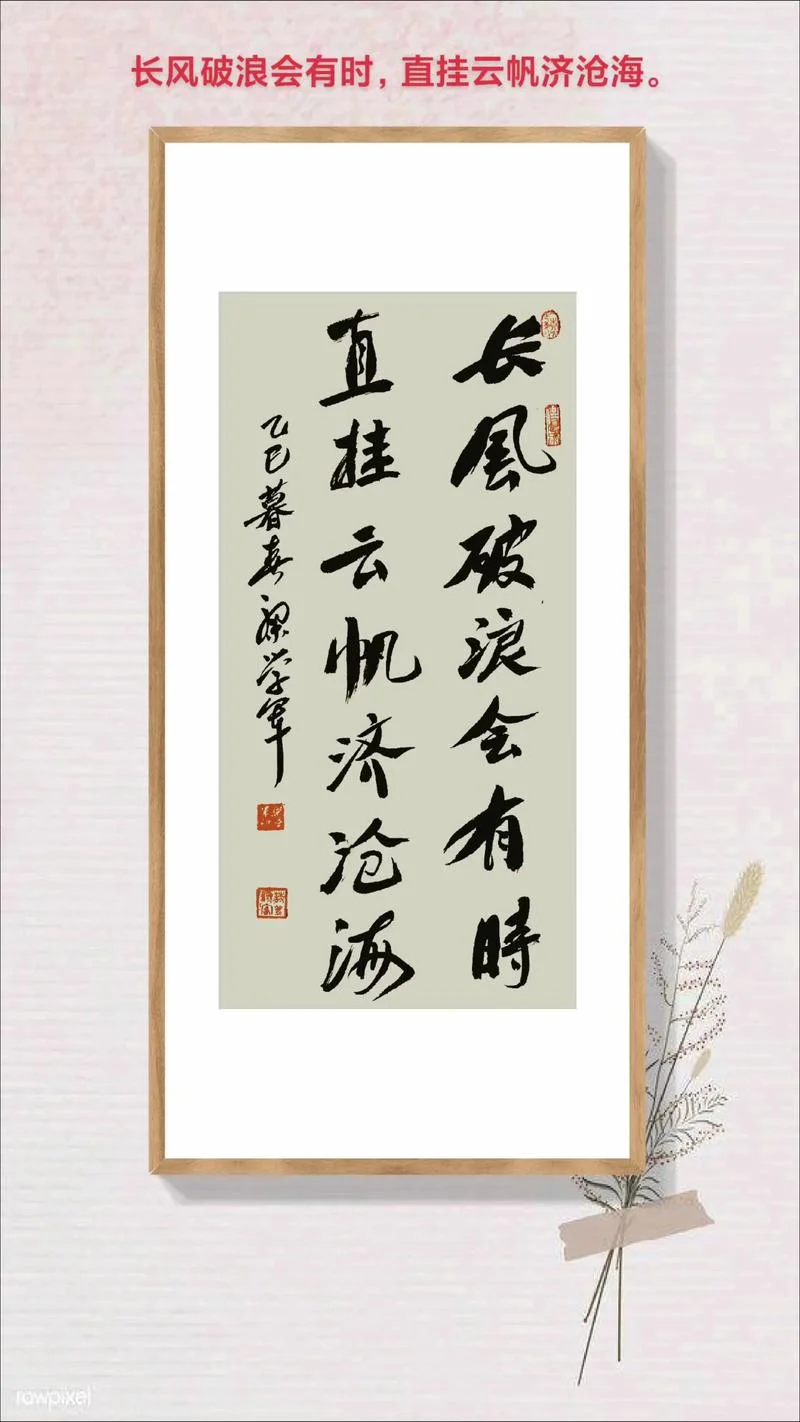 长风破浪会有时，直挂云帆济沧海。
长風破浪会有時
直挂云帆济沧海
乙巳暮春梁学军
rawpixel